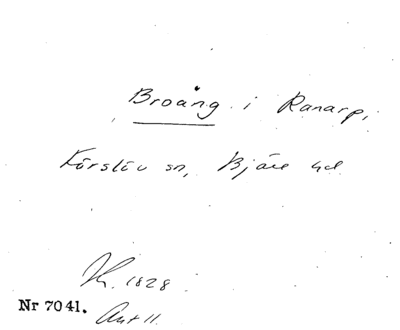 Broång i Ranarp,
Förslöv sn, Bjäre hd
K. 1828
Nr 7041.
Akt 11.